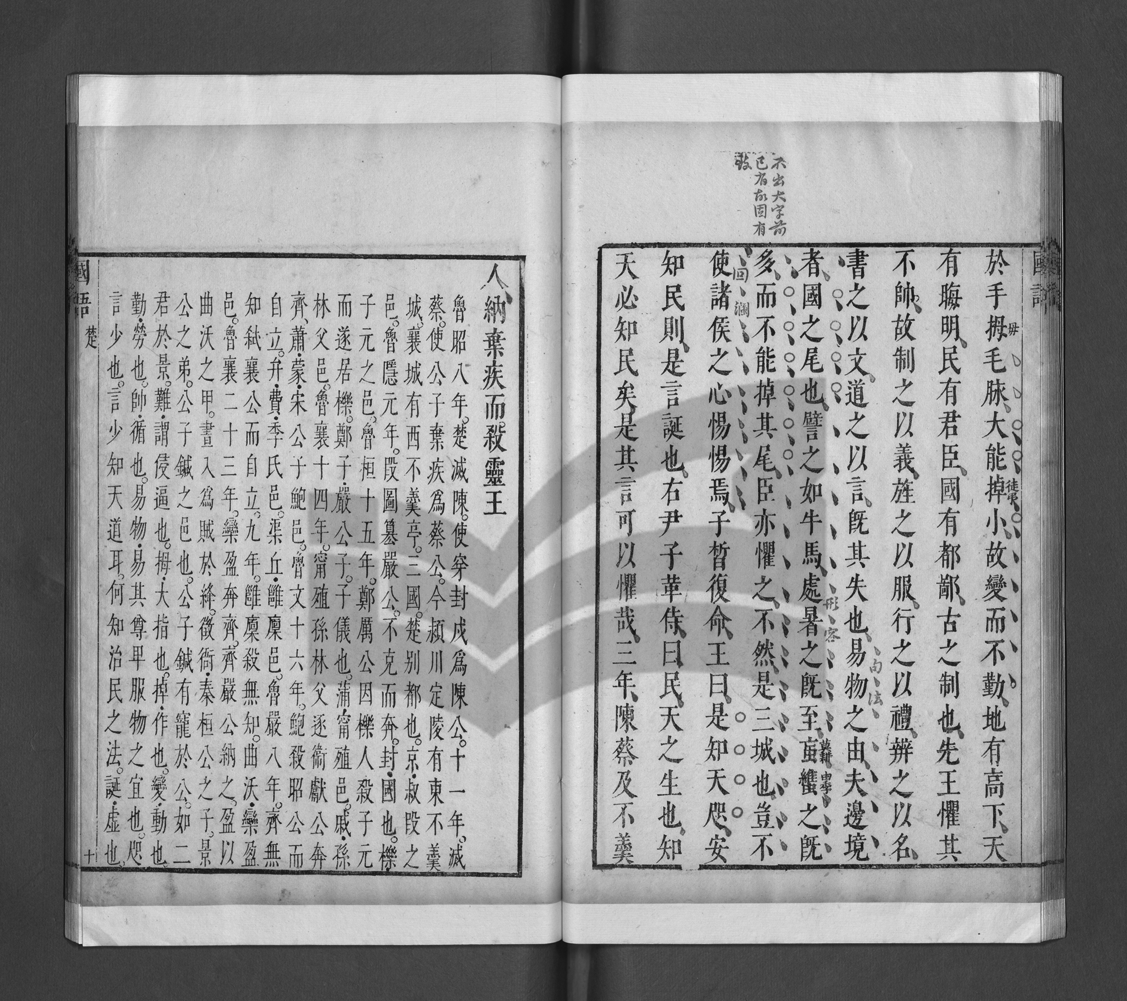 不出大字前
已有故固有
國語
於手拇毛脉大能掉小故變而不勤地有高下天
毋
徒吊
有晦明民有君臣國有都鄙古之制也先王懼其
不帥故制之以義旌之以服行之以禮辨之以名
書之以文道之以言旣其失也易物之由夫邊境
句法
者國之尾也譬之如牛馬處暑之旣至䖟䗽之旣
形容
多而不能掉其尾臣亦懼之不然是三城也豈不
使諸侯之心惕惕焉子晳復命王曰是知天咫安
回瀾
知民則是言誕也右尹子革侍曰民天之生也知
天必知民矣是其言可以懼哉三年陳蔡及不羹
人納棄疾而殺靈王
魯昭八年楚滅陳使穿封戌爲陳公十一年滅
蔡使公子棄疾爲蔡公今潁川定陵有東不羹
城襄城有西不羹亭三國楚别都也京叔段之
邑魯隱元年段圖篡嚴公不克而奔封國也櫟
子元之邑魯桓十五年鄭厲公因櫟人殺子元
而遂居櫟鄭子嚴公子子儀也蒲甯殖邑戚孫
林父邑魯襄十四年甯殖孫林父逐衛獻公奔
齊蕭蒙宋公子鮑邑魯文十六年鮑殺昭公而
自立弁費季氏邑渠丘雝廩邑魯嚴八年齊無
知弑襄公而自立九年雝廩殺無知曲沃欒盈
邑魯襄二十三年欒盈奔齊齊嚴公納之盈以
曲沃之甲晝入爲賊於絳徵衙秦桓公之子景
公之弟公子鍼之邑也公子鍼有寵於公如二
君於景難謂侵逼也拇大指也掉作也變動也
勤勞也帥循也易物易其尊卑服物之宜也咫
言少也言少知天道耳何知治民之法誕虛也
國語
楚
十